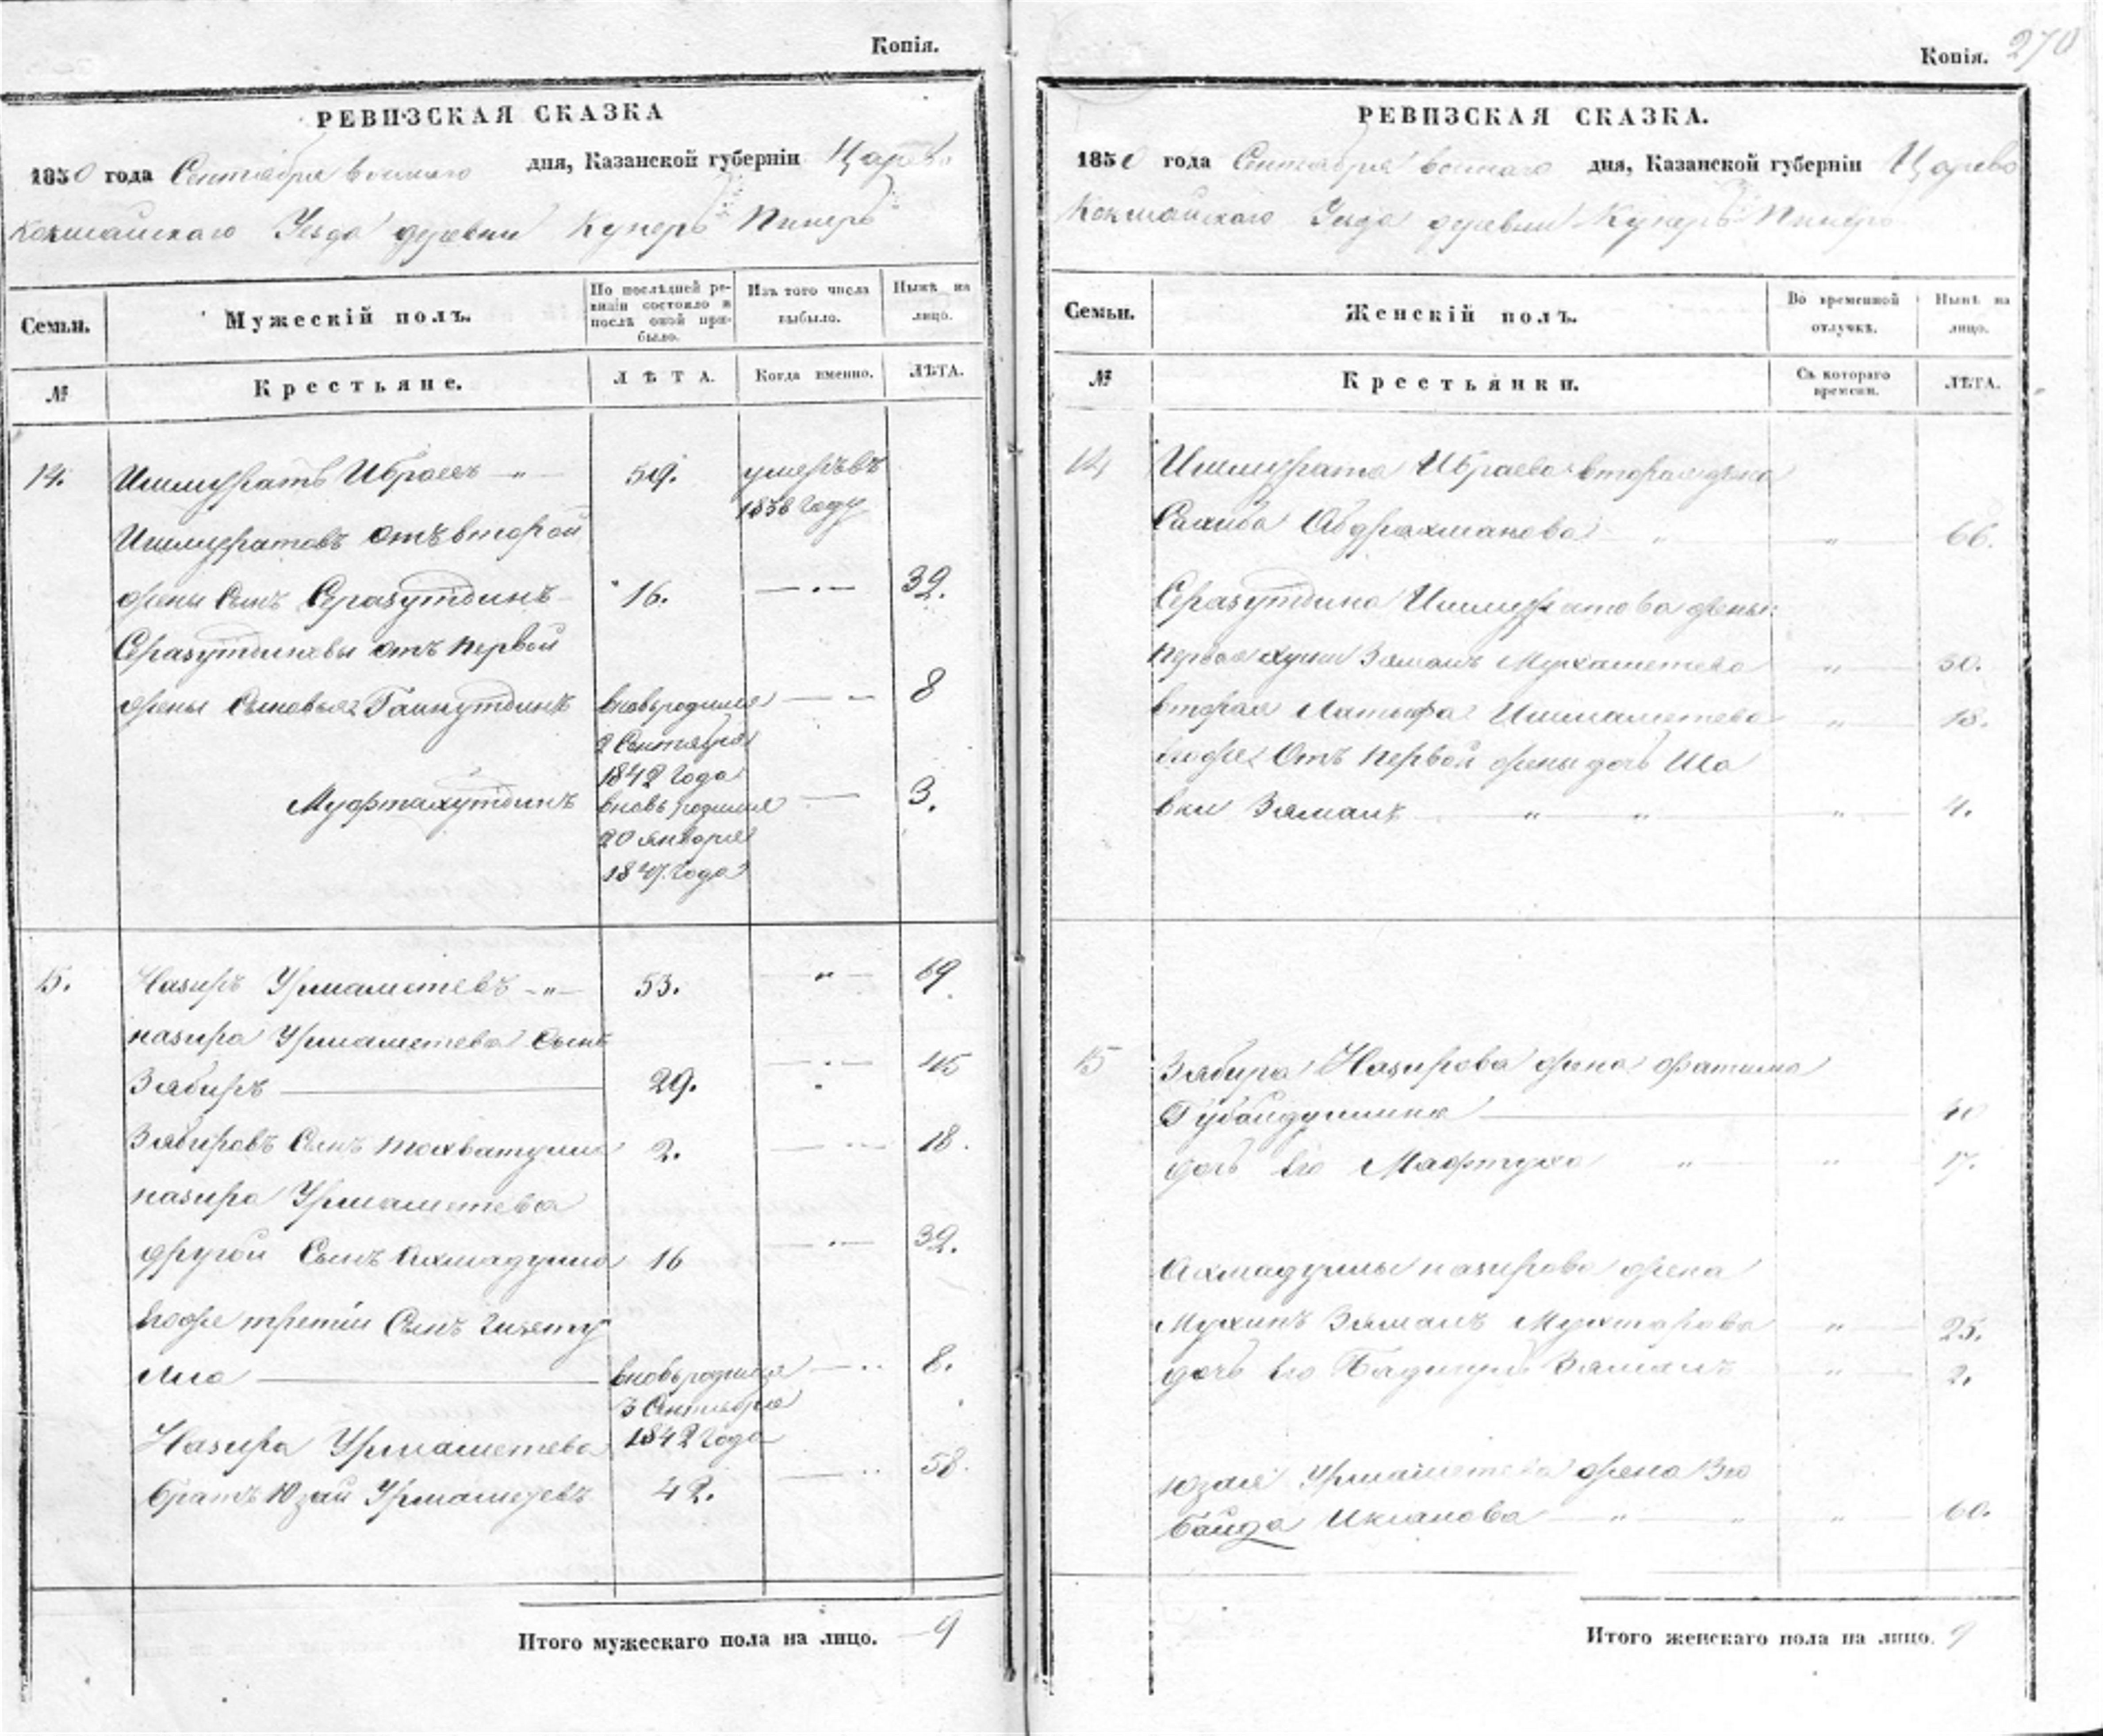 Копія.
РЕВИЗСКАЯ СКАЗКА
1850 года Сентября восмаго дня, Казанской губерніи Царево
кокшайскаго Уезда деревни Кукеръ
Семьи.
Мужескій полъ.
По послѣдней ревизіи состояло и послѣ оной прибыло.
Изъ того числа выбыло.
Нынѣ на лицо.
№
Крестьяне.
ЛѢТА.
Когда именно.
ЛѢТА.
14. Ишмуратъ Ибраевъ 59. умеръ въ
1838 году
Ишмуратовъ отъ второй
жены сынъ Серазутдинъ 16. 32.
Серазутдиновы отъ первой
жены сыновья: Гайнутдинъ вновьродился 8
2 Сентября
1842 года
Муфтахутдинъ вновь родился 3.
20 января
1847 года
15. Назиръ Урмаметевъ 53. 69
назира Урмаметева сынъ
Зябиръ 29. 45
Зябировъ Сынъ тохватулла 2. 18.
назира Урмаметева
другой Сынъ Ахмадулла 16 32.
Егоже третій Сынъ
вновьродился 8.
3 Сентября
1842 года
Назира Урмаметева
братъ Юзай Урмаметевъ 42. 58.
Итого мужескаго пола на лицо. 9
Копія. 270
РЕВИЗСКАЯ СКАЗКА.
1850 года Сентября восмаго дня, Казанской губерніи Царево
Кокшайскаго Уезда деревни Кукеръ
Семьи.
Женскій полъ.
Во временной отлучкѣ.
Нынѣ на лицо.
№
Крестьянки.
Съ котораго времени.
ЛѢТА.
14 Ишмурата Ибраева вторая жена
Сахиба Абдрахманова 66.
Серазутдина Ишмуратова жены:
первая Зяманъ Мухаметева 30.
вторая Латыфа Ишмаметева 18.
Егоже отъ первой жены дочь Ша
вки Зяманъ 4.
15 Зябира Назирова жена фатима
Губайдуллина 40
дочь его Мафтуха 17.
Ахмадуллы назирова жена
Зяманъ Мухтарова 25.
дочь его Зяманъ 2.
Юзая Урмаметева жена
Иксанова 60.
Итого женскаго пола на лицо. 9